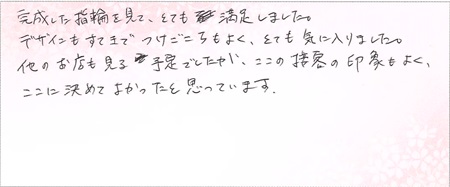 完成した指輪を見て、とても満足しました。
デザインもすてきで つけごこちもよく、とても気に入りました。
他のお店も見る予定でしたが、ここの接客の印象もよく、
ここに決めてよかったと思っています.